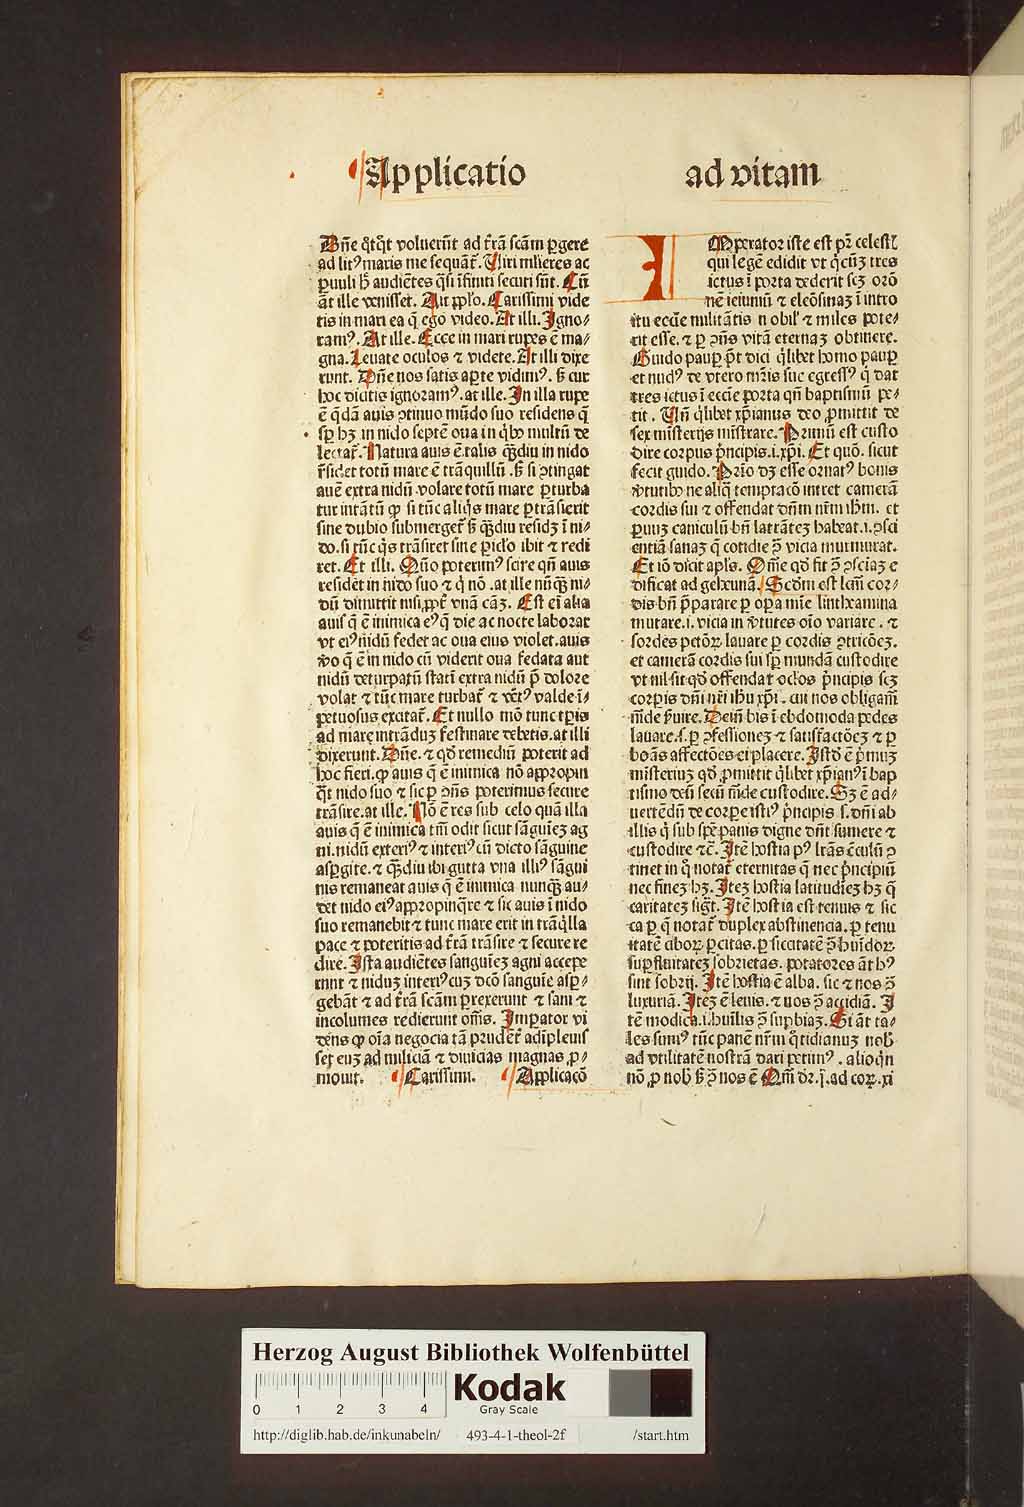 Applicatio ad vitam
Dn̄e q̄tq̄t voluerūt ad t̄rā scām ꝑgere
ad litꝰ maris me sequāt᷑. Uiri mlieres ac
ꝑuuli h̄ audiētes q̄si īfiniti secuti sūt. Cū
āt ille venisset. Ait ꝓpl'o. Carissimi vide
tis in mari ea q̄ ego video. At illi. Igno⸗
ramꝰ. At ille. Ecce in mari rupes ē ma⸗
gna. Leuate oculos ⁊ videte. At illi dixe
runt. Dn̄e nos satis aꝑte vidimꝰ. s̄ cur
hoc dicitis ignoramꝰ. at ille. In illa rupe
ē q̄dā auis ↄtinuo mādo suo residens q̄
sꝑ hꝫ in nido septē oua in qͥbꝰ multū de
lectat᷑. Natura auis ē talis qͣ̄diu in nido
r̄sidet totū mare ē trāquillū. s̄ si ↄtingat
auē extra nidū volare totū mare ꝑturba
tur intātū ꝙ si tūc aliq̄s mare ꝑtrāsierit
sine dubio submerget᷑ s̄ qͣ̄diu residꝫ ī ni⸗
do. si tūc q̄s trāsiret sine ꝑicl'o ibit ⁊ redi
ret. Et illi. Qūo poterimꝰ scire qn̄ auis
residet in nido suo ⁊ qn̄ nō. at ille nūqͣ̄ ni⸗
dū dimittit nisi ꝓpt᷑ vnā cāꝫ. Est eī alia
auis q̄ ē inimica eiꝰ q̄ die ac nocte laborat
vt eiꝰ nidū fedet ac oua eius violet. auis
v̄o q̄ ē in nido cū viderit oua fedata aut
nidū deturpatū statī extra nidū p̄ dolore
volat ⁊ tūc mare turbat᷑ ⁊ vētꝰ valde ī⸗
petuosus excitat᷑. Et nullo mō tunc tꝑis
ad mare intrāduꝫ festinare debetis. at illi
dixerunt. Dn̄e. ⁊ qd̄ remediū poterit ad
hoc fieri. ꝙ auis q̄ ē inimica nō appropin
q̄t nido suo ⁊ sic ꝑ ↄn̄s poterimus secure
trāsire. at ille. Nō ē res sub celo quā illa
auis q̄ ē inimica tm̄ odit sicut sāguīeꝫ ag
ni. nidū exteriꝰ ⁊ interiꝰ cū dicto sāguine
aspgite. ⁊ qͣ̄diu ibi gutta vna illiꝰ sāgui
nis remaneat auis q̄ ē inimica nunqͣ̄ au⸗
det nido eiꝰ appropinq̄re ⁊ sic auis ī nido
suo remanebit ⁊ tunc mare erit in trāq̄lla
pace ⁊ poteritis ad t̄rā trāsire ⁊ secure re
dire. Ista audiētes sanguīeꝫ agni accepe
runt ⁊ niduꝫ interiꝰ cuꝫ dc̄o sanguīe aspꝑ⸗
gebāt ⁊ ad t̄rā scām ꝑrexerunt ⁊ sani ⁊
incolumes redierunt om̄s. Imperator vi
dens ꝙ oīa negocia tā prudēt᷑ adīpleuis
set euꝫ ad miliciā ⁊ diuicias magnas ꝓ⸗
mouit. Carissimi. Applicacō
IMperator iste est pr̄ celest'
qui legē edidit vt q̄cūꝫ tres
ictus ī porta dederit scꝫ orō
nē ieiuniū ⁊ eleōsinaꝫ ī intro
itu ecclē militātis nobil' ⁊ miles pote⸗
rit esse. ⁊ ꝑ ↄn̄s vitā eternaꝫ obtinere.
Guido pauꝑ p̄t dici q̄libet homo pauꝑ
et nudꝰ de vtero mr̄is sue egressꝰ q̄ dat
tres ictus ī ecclē porta qn̄ baptismū pe⸗
tit. Un̄ q̄libet xp̄ianus deo ꝓmittit de
sex mīsterijs mīstrare. Primū est custo
dire corpus pͥncipis .i. xp̄i. Et quō. sicut
fecit guido. Prīo dꝫ esse ornatꝰ bonis
v̄tutibꝰ ne aliq̄ temptacō intret camerā
cordis sui ⁊ offendat dn̄m nr̄m ihm̄. et
ꝑuuꝫ caniculū bn̄ latrāteꝫ habeat .i. ↄsci
entiā sanaꝫ q̄ cotidie ↄ̄ vicia murmurat.
Et iō dicit apl's. Om̄e qd̄ fit ↄ̄ ↄsciaꝫ e
dificat ad gehennā. Scd̄m est lectū cor⸗
dis bn̄ p̄parare ꝑ oꝑa mīe lintheamina
mutare .i. vicia in v̄tutes oīo variare. ⁊
sordes petōꝝ lauare ꝑ cordis ↄtricōeꝫ.
et camerā cordis sui sꝑ mundā custodire
vt nil sit qd̄ offendat oc̄los pͥncipis scꝫ
corꝑis dn̄i nr̄i ihū xp̄i. cui nos obligam̄
inde ẜuire. Dein̄ bis ī ebdomoda pedes
lauare .s. ꝑ ↄfessioneꝫ ⁊ satisfactōeꝫ ⁊ ꝑ
boās affectōes ei placere. Istd̄ ē pͥmuꝫ
mīsteriuꝫ qd̄ ꝓmittit q̄libet xp̄ianꝰ ī bap
tismo deū secū inde custodire. Sꝫ ē ad⸗
uertēdū de corꝑe istiꝰ pͥncipis .s. dn̄i ab
illis q̄ sub spē panis digne dn̄t sumere ⁊
custodire ⁊c̄. Itē hostia pꝰ lrās ē culū ↄ
tinet in q̄ notat᷑ eternitas q̄ nec pͥncipiū
nec fineꝫ hꝫ. Iteꝫ hostia latitudīeꝫ hꝫ q̄
caritateꝫ sigt᷑. Itē hostia est tenuis ⁊ sic
ca ꝑ q̄ notat᷑ duplex abstinencia. ꝑ tenu
itatē ciboꝝ ꝑcitas. ꝑ siccitatē ↄ̄ huīdoꝝ
suꝑfluitateꝫ sobrietas. potatores āt hꝰ
sint sobrij. Itē hostia ē alba. sic ⁊ nos ↄ̄
luxuriā. Iteꝫ ē leuis. ⁊ uos ↄ̄ accidiā. I
tē modica .i. hu̅ilis ↄ̄ suꝑbiaꝫ. Si āt ta⸗
les sumꝰ tūc panē nr̄m q̄tidianuꝫ nob̄
ad vtilitatē nostrā dari petimꝰ. alioqn̄
nō ꝓ nob̄ s̄ ↄ̄ nos ē Qm̄ dr̄. j. ad coꝝ. xi
Herzog August Bibliothek Wolfenbüttel
0 1 2 3 4 Kodak
Gray Scale
http://diglib.hab.de/inkunabeln/ 493-4-1-theol-2f /start.htm